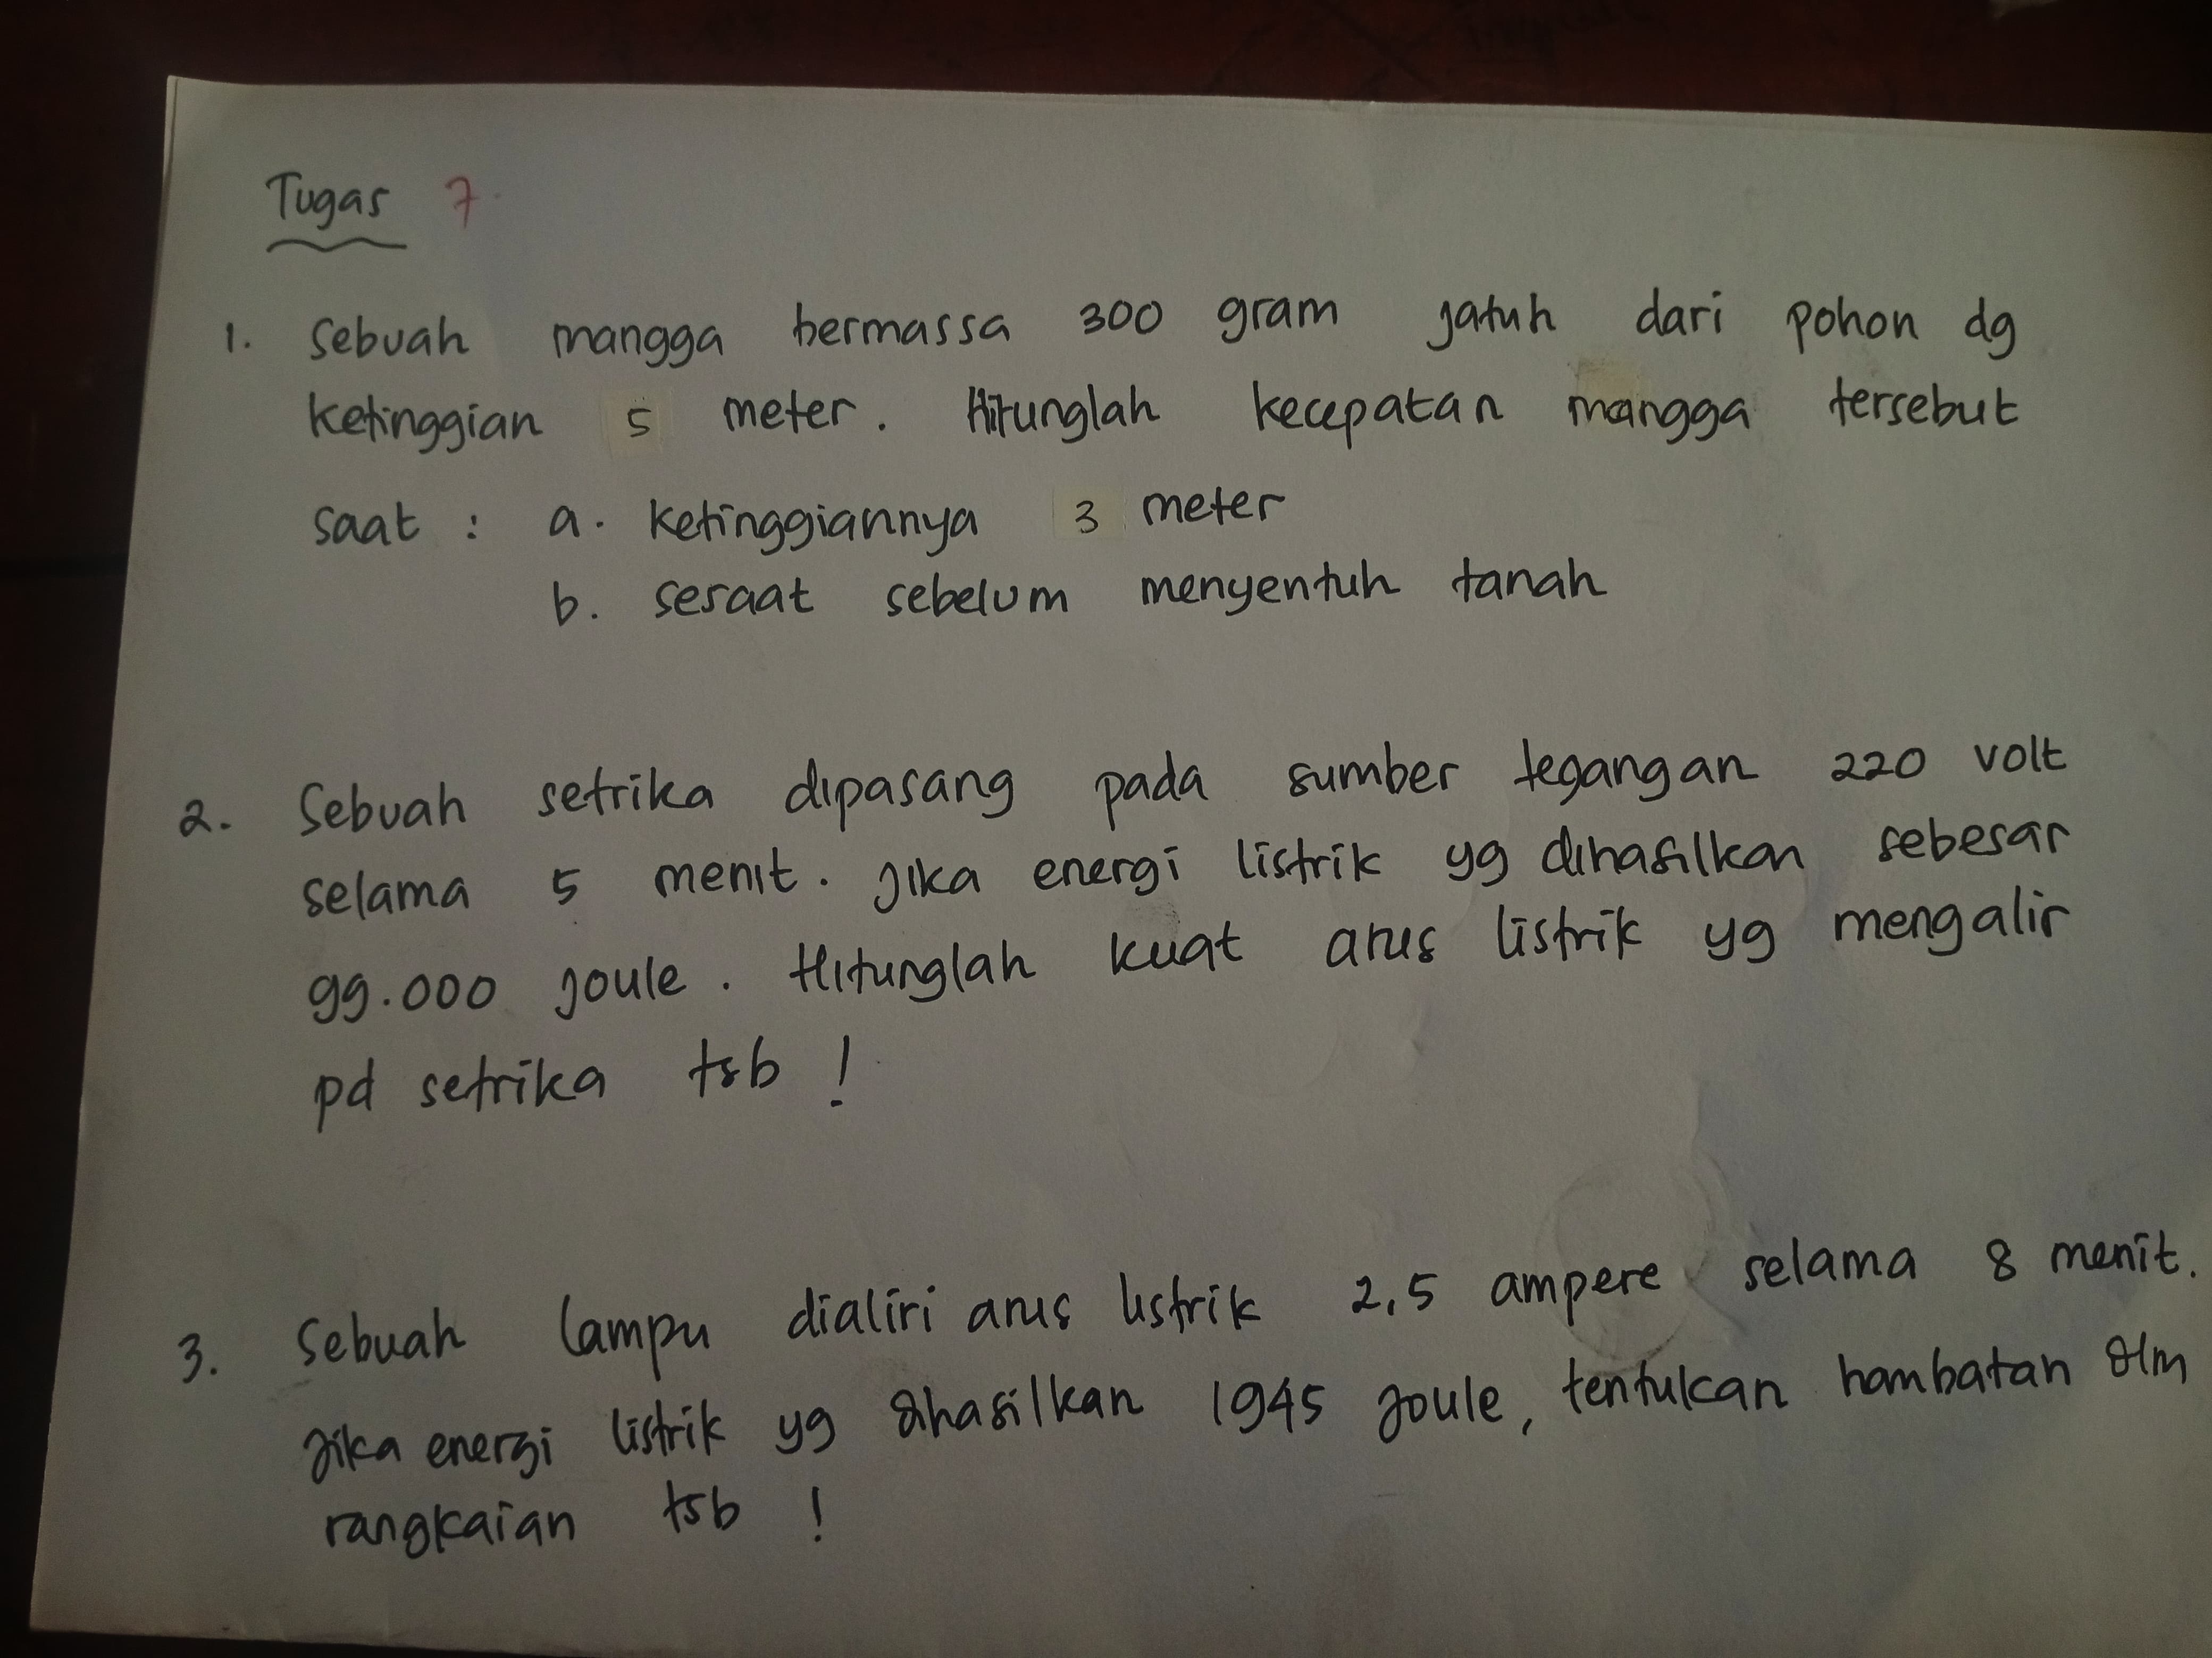 Tugas 7.
1. Sebuah mangga bermassa 300 gram jatuh dari pohon dg
ketinggian 5 meter. Hitunglah kecepatan mangga tersebut
saat : a. ketinggiannya 3 meter
b. sesaat sebelum menyentuh tanah
2. Sebuah setrika dipasang pada sumber tegangan 220 volt
selama 5 menit. Jika energi listrik yg dihasilkan sebesar
99.000 joule. Hitunglah kuat arus listrik yg mengalir
pd setrika tsb !
3. Sebuah lampu dialiri arus listrik 2,5 ampere selama 8 menit.
Jika energi listrik yg dihasilkan 1945 Joule, tentukan hambatan dlm
rangkaian tsb !